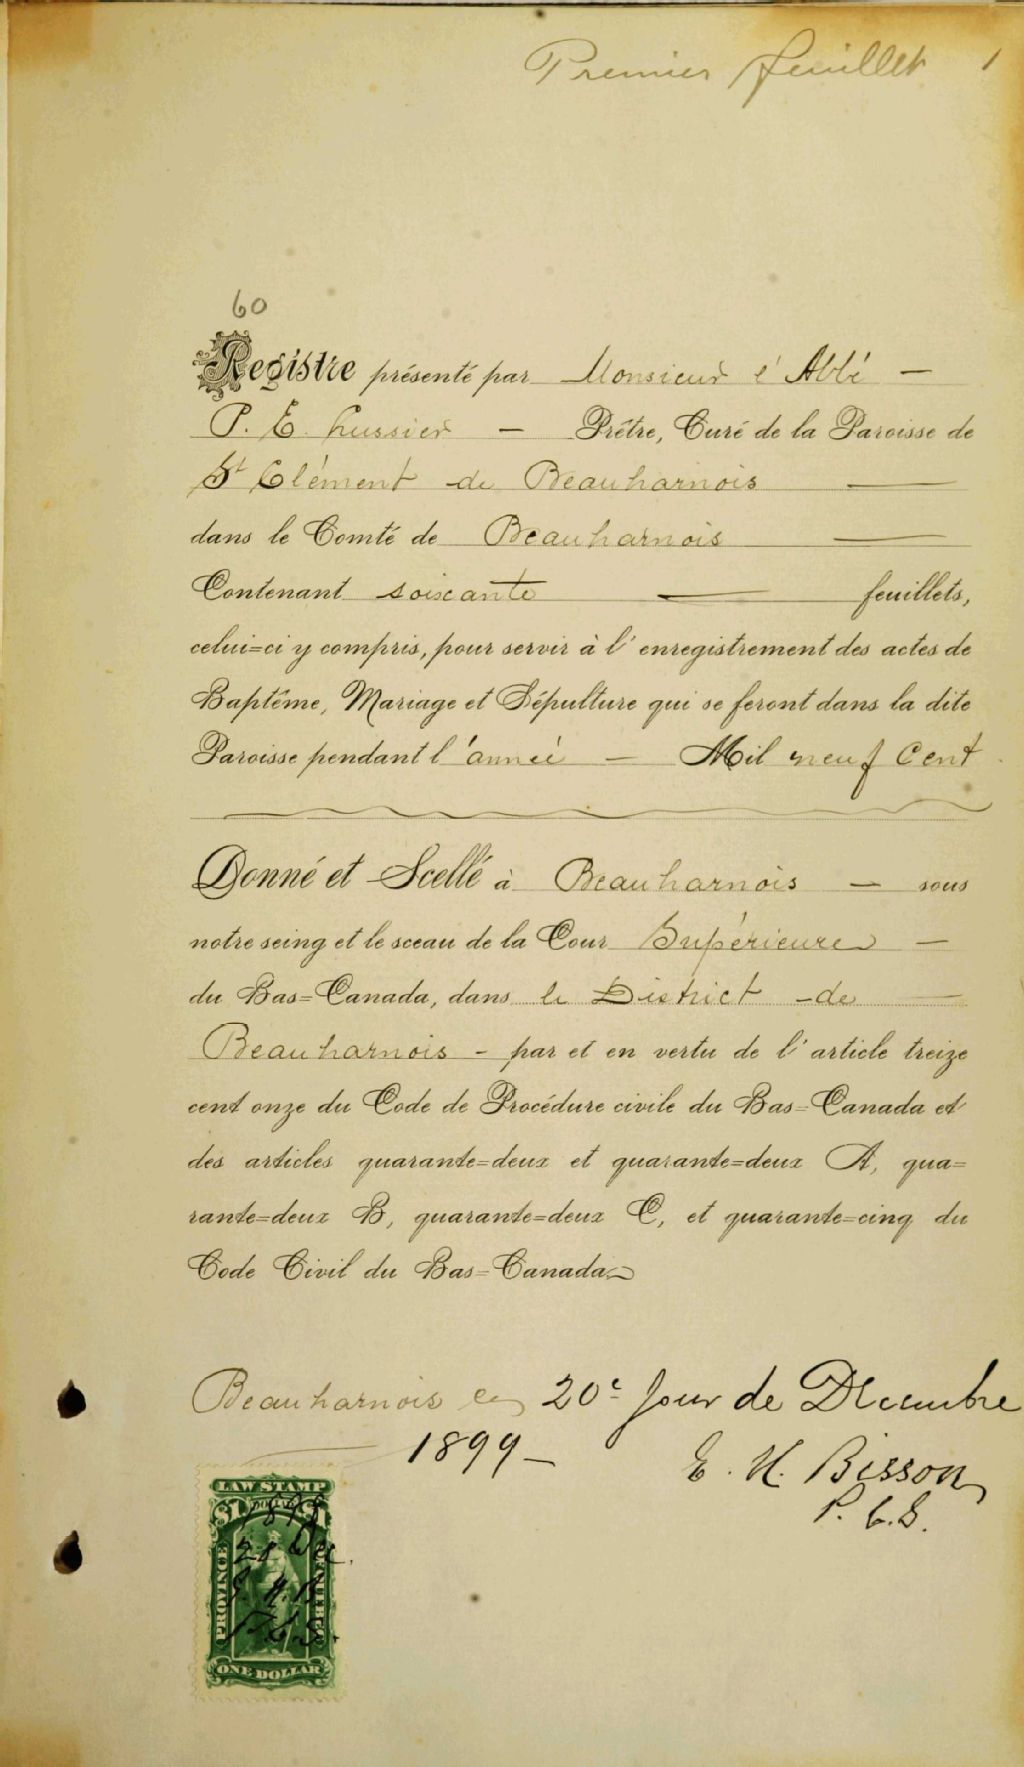 Premier feuillet 1
60
Registre présenté par Monsieur l'Abbé —
P. E. Lussier — Prêtre, Curé de la Paroisse de
St Clément de Beauharnois —
dans le Comté de Beauharnois —
Contenant soixante — feuillets,
celui=ci y compris, pour servir à l'enregistrement des actes de
Baptême, Mariage et Sépulture qui se feront dans la dite
Paroisse pendant l'année — Mil neuf Cent
Donné et Scellé à Beauharnois — sous
notre seing et le sceau de la Cour Supérieure —
du Bas=Canada, dans le District de —
Beauharnois - par et en vertu de l'article treize
cent onze du Code de Procédure civile du Bas=Canada et
des articles quarante=deux et quarante=deux A, qua=
rante=deux B, quarante=deux C, et quarante=cinq du
Code Civil du Bas=Canada
Beauharnois ce 20e Jour de Décembre
1899 —
E. H. Bisson
P. C. S.
LAW STAMP
$1 DOLLAR $1
PROVINCE
QUEBEC
ONE DOLLAR